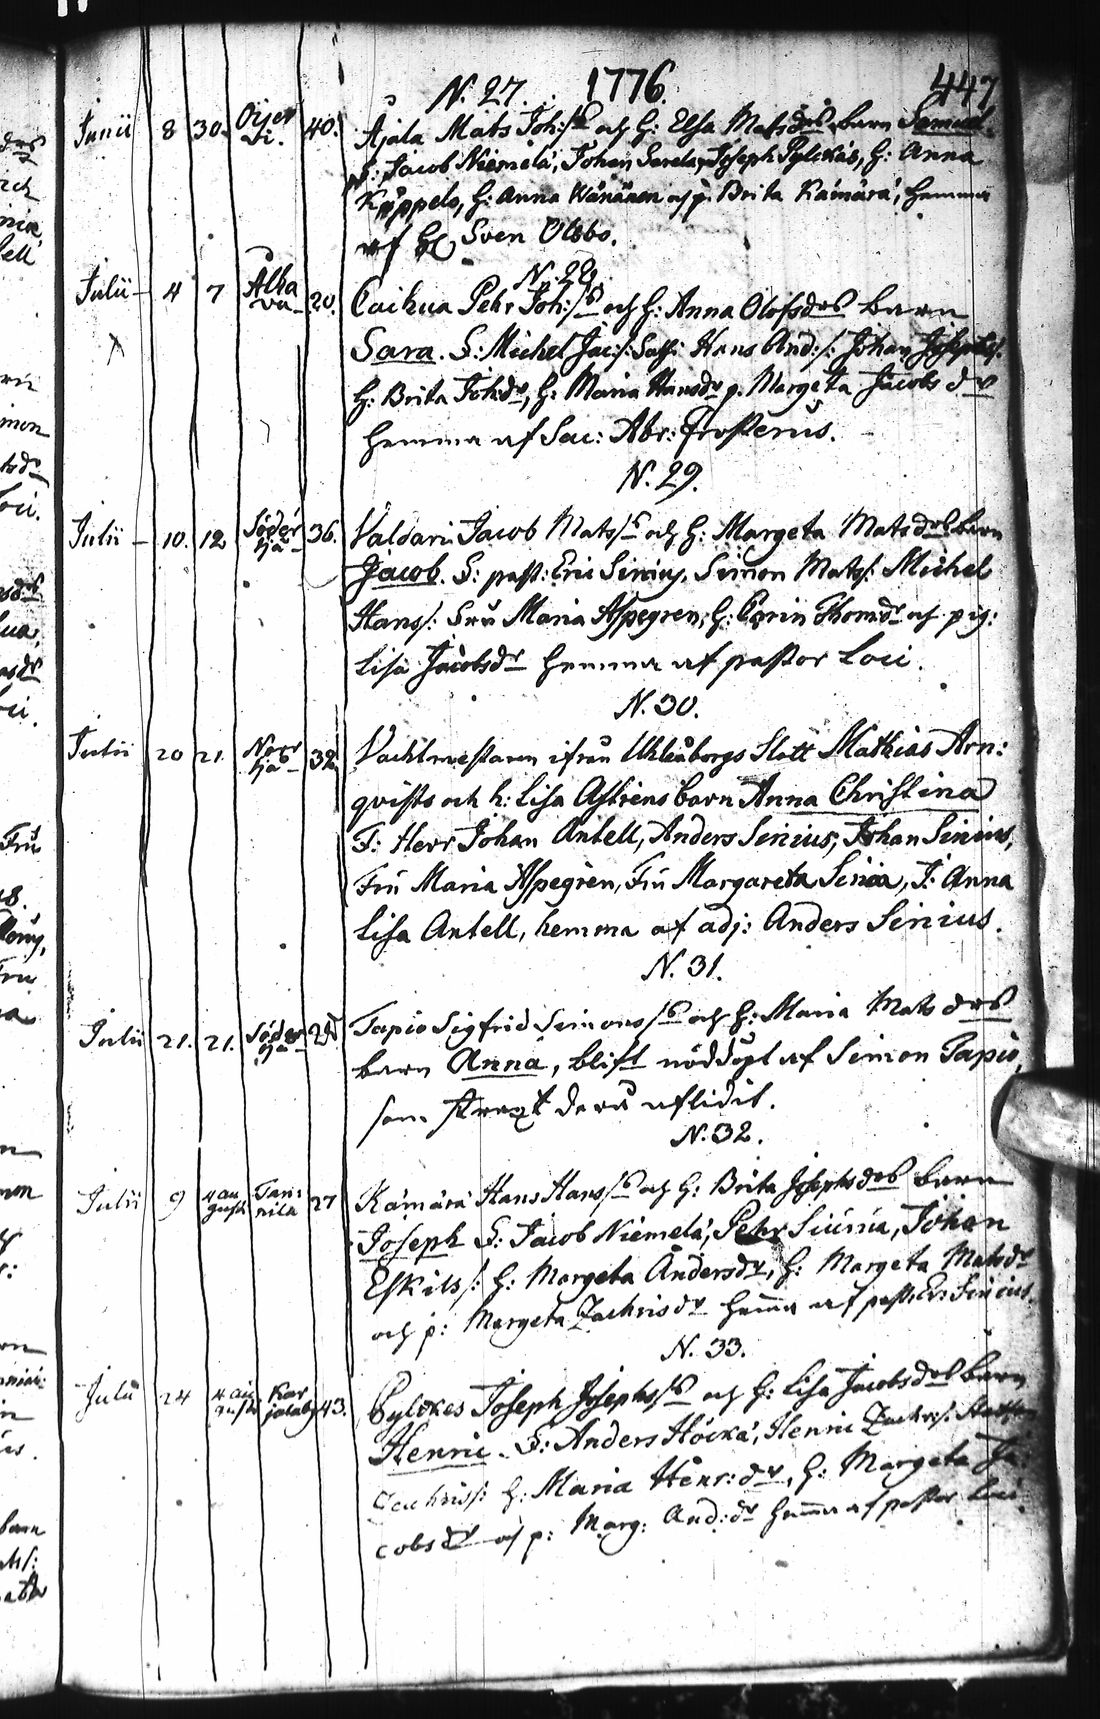 N. 27. 1776. 447
Junii 8 30. Oijer vi. 40. Ajala Mats Joh:/s och H: Elsa Matsdrs barn Samuel.
F: Jacob Niemelä, Johan Sarela, Joseph Pylckäs, H: Anna
Kåppelo, H: Anna Wänänen och p. Brita Kämärä, hemma
af H. Sven Olebo.
N. 28.
Julii 4 7 Alha va 20. Caihua Pehr Joh:/s och H: Anna Olofsdrs barn
Sara. F: Michel Jac:/: Hans And:/: Johan Josephs/:
H: Brita Joh:dr, H: Maria Hansdr p. Margeta Jacobs dr
hemma af Sac: Abr: Frosterus.
N. 29.
Julii 10. 12 Söder kjä 36. Valdari Jacob Mats/s och H: Margeta Matsdrs barn
Jacob. F: past: Eric Sinius, Simon Mats/: Michel
Hans/: Fru Maria Aspegren, H: Carin Thomdr och pig:
Lisa Jacobsdr hemma af pastor Loci.
N. 30.
Julii 20 21. Norr kjä 32 Vachtmestaren ifrån Uhleåborgs Slott Mathias Arn:
qvists och h: Lisa Astrens barn Anna Christina
F: Herr Johan Antell, Anders Sinius, Johan Sinius,
Fru Maria Aspegren, Fru Margareta Sinia, J: Anna
Lisa Antell, hemma af adj: Anders Sinius.
N. 31.
Julii 21. 21. Söder kjä 25 Tapio Sigfrid Simons/s och H: Maria Matsdrs
barn Anna, blift nöddögt af Simon Tapio,
som straxt derå aflidit.
N. 32.
Julii 9 4 au gusti Tani nila 27 Kämärä Hans Hans/s och H: Brita Josephsdrs barn
Joseph F: Jacob Niemelä, Pehr Siuria, Johan
Eskils/: H: Margeta Andersdr, H: Margeta Matsdr
och p: Margeta Zachrisdr hemma af past: Er: Sinius.
N. 33.
Julii 24 4 au gusti Kar jalaky 43. Pylckes Joseph Josephs/s och H: Lisa Jacobsdrs barn
Henric. F: Anders Höckä, Henric Zachri/:
Zachris/: H: Maria Henr:dr, H: Margeta Ja:
cobsdr och p: Marg: And:dr hemma af pastor Loci.